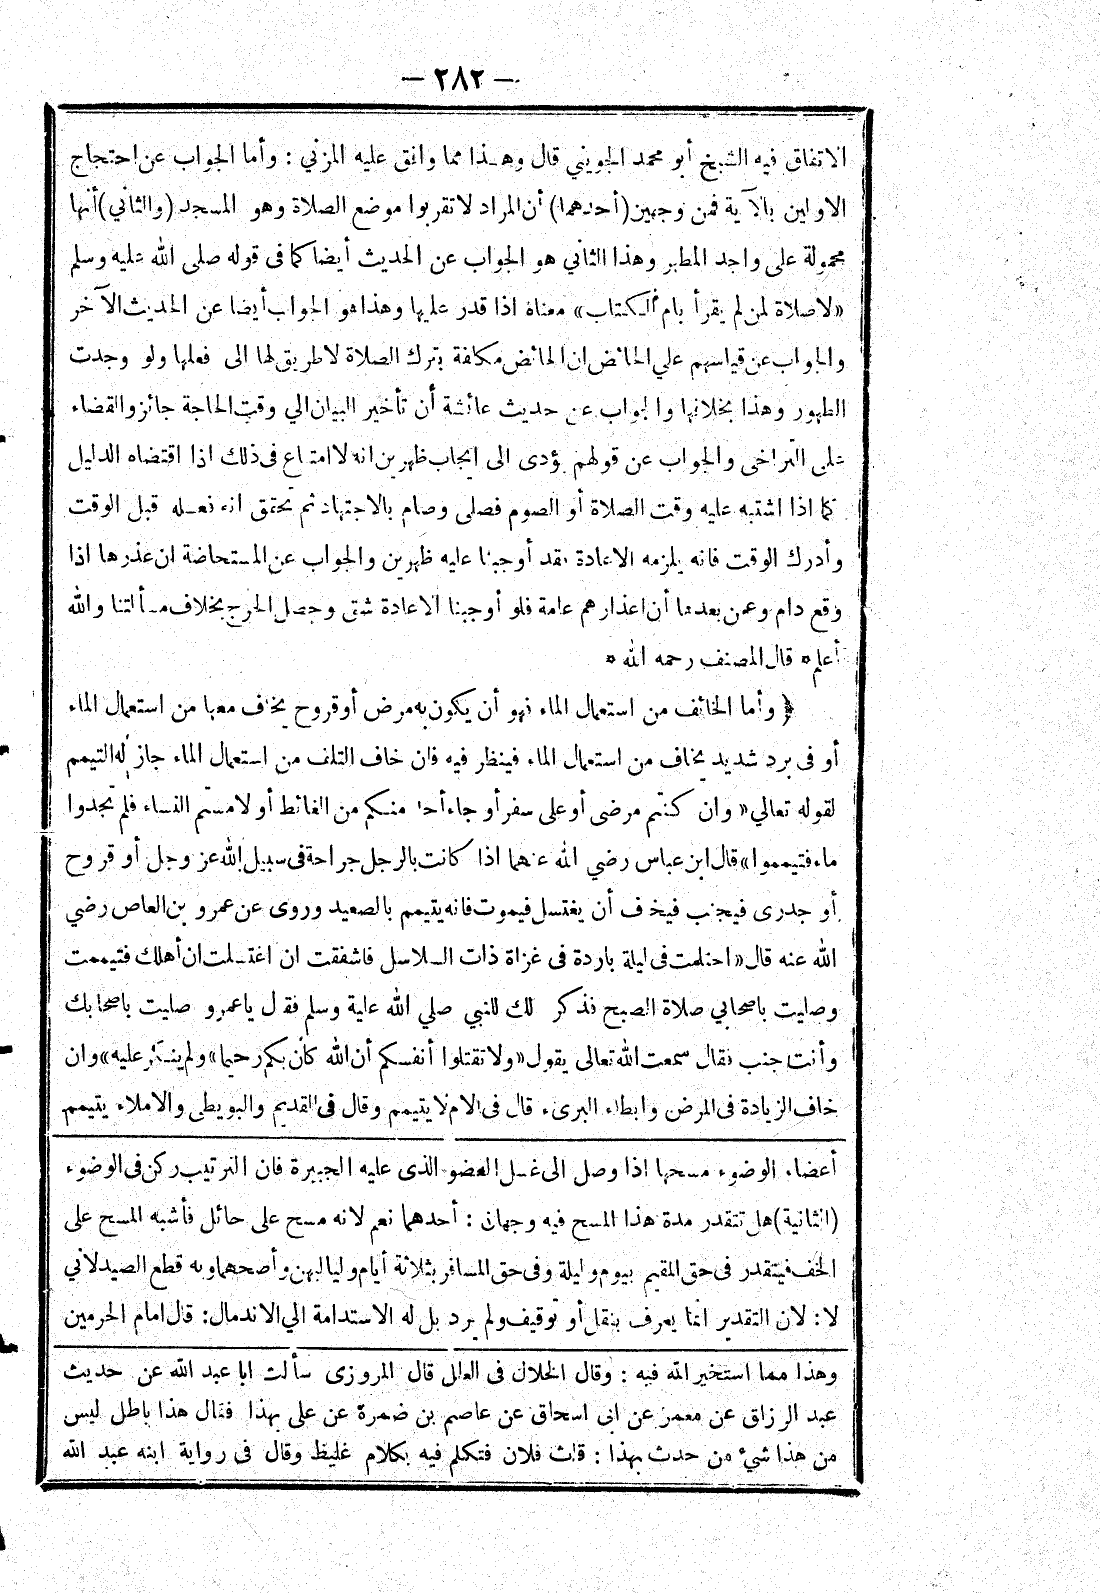 — ٢٨٢ —
الاتفاق فيه الشيخ أبو محمد الجويني قال وهـذا مما وافق عليه المزني : وأما الجواب عن احتجاج
الاولين بالآية فمن وجهين (أحدهما) أن المراد لا تقربوا موضع الصلاة وهو المسجد (والثاني) أنها
محمولة على واجد المطهر وهذا الثاني هو الجواب عن الحديث أيضا كما في قوله صلى الله عليه وسلم
«لا صلاة لمن لم يقرأ بام الكتاب» معناه اذا قدر عليها وهذا هو الجواب أيضا عن الحديث الآخر
والجواب عن قياسهم علي الحائض ان الحائض مكلفة بترك الصلاة لا طريق لها الى فعلها ولو وجدت
الطهور وهذا بخلافها والجواب عن حديث عائشة أن تأخير البيان الي وقت الحاجة جائز والقضاء
على التراخي والجواب عن قولهم يؤدى الى ايجاب ظهرين انه لا امتناع في ذلك اذا اقتضاه الدليل
كما اذا اشتبه عليه وقت الصلاة أو الصوم فصلى وصام بالاجتهاد ثم تحقق انه فعـله قبل الوقت
وأدرك الوقت فانه يلزمه الاعادة فقد أوجبنا عليه ظهرين والجواب عن المستحاضة ان عذرها اذا
وقع دام وعمن بعدها أن اعذارهم عامة فلو أوجبنا الاعادة شق وحصل الحرج بخلاف مسألتنا والله
أعلم * قال المصنف رحمه الله *
﴿ وأما الخائف من استعمال الماء فهو أن يكون به مرض أو قروح يخاف معها من استعمال الماء
أو فى برد شديد يخاف من استعمال الماء فينظر فيه فان خاف التلف من استعمال الماء جاز له التيمم
لقوله تعالي « وان كنتم مرضى أو على سفر أو جاء أحد منكم من الغائط أو لامستم النساء فلم تجدوا
ماء فتيمموا» قال ابن عباس رضي الله عنهما اذا كانت بالرجل جراحة في سبيل الله عز وجل أو قروح
أو جدرى فيجنب فيخاف أن يغتسل فيموت فانه يتيمم بالصعيد وروى عن عمرو بن العاص رضي
الله عنه قال « احتلمت في ليلة باردة فى غزاة ذات السلاسل فاشفقت ان اغتسلت ان أهلك فتيممت
وصليت باصحابي صلاة الصبح فذكر ذلك للنبي صلي الله علية وسلم فقال ياعمرو صليت باصحابك
وأنت جنب فقال سمعت الله تعالى يقول « ولا تقتلوا أنفسكم أن الله كان بكم رحيما » ولم ينكر عليه » وان
خاف الزيادة في المرض وابطاء البرىء قال فى الام لا يتيمم وقال فى القديم والبويطى والاملاء يتيمم
أعضاء الوضوء مسحها اذا وصل الى غسل العضو الذى عليه الجبيرة فان الترتيب ركن في الوضوء
(الثانية) هل تتقدر مدة هذا المسح فيه وجهان : أحدهما نعم لانه مسح على حائل فأشبه المسح على
الخف فيتقدر فى حق المقيم بيوم وليلة وفى حق المسافر بثلاثة أيام ولياليهن وأصحهما وبه قطع الصيدلاني
لا : لان التقدير انما يعرف بنقل أو توقيف ولم يرد بل له الاستدامة الي الاندمال : قال امام الحرمين
وهذا مما استخير الله فيه : وقال الخلال فى العلل قال المروزى سألت ابا عبد الله عن حديث
عبد الرزاق عن معمر عن ابى اسحاق عن عاصم بن ضمرة عن على بهذا فقال هذا باطل ليس
من هذا شيء من حدث بهذا : قلت فلان فتكلم فيه بكلام غليظ وقال فى رواية ابنه عبد الله